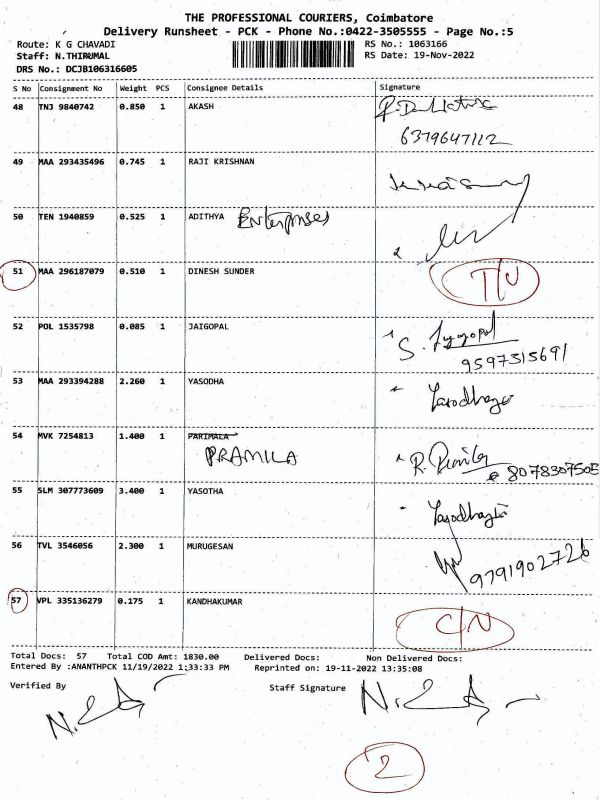 THE PROFESSIONAL COURIERS, Coimbatore
Delivery Runsheet - PCK - Phone No.:0422-3505555 - Page No.:5
Route: K G CHAVADI RS No.: 1063166
Staff: N.THIRUMAL RS Date: 19-Nov-2022
DRS No.: DCJB106316605
S No Consignment No Weight PCS Consignee Details Signature
48 TNJ 9840742 0.850 1 AKASH
6379647112
49 MAA 293435496 0.745 1 RAJI KRISHNAN
50 TEN 1940859 0.525 1 ADITHYA Enterprises
51 MAA 296187079 0.510 1 DINESH SUNDER
52 POL 1535798 0.085 1 JAIGOPAL
9597315691
53 MAA 293394288 2.260 1 YASODHA
54 MVK 7254813 1.400 1 PARIMALA
PRAMILA 8078307505
55 SLM 307773609 3.400 1 YASOTHA
56 TVL 3546056 2.300 1 MURUGESAN
9791902726
57 VPL 335136279 0.175 1 KANDHAKUMAR
C/N
Total Docs: 57 Total COD Amt: 1830.00 Delivered Docs: Non Delivered Docs:
Entered By :ANANTHPCK 11/19/2022 1:33:33 PM Reprinted on: 19-11-2022 13:35:08
Verified By Staff Signature
2